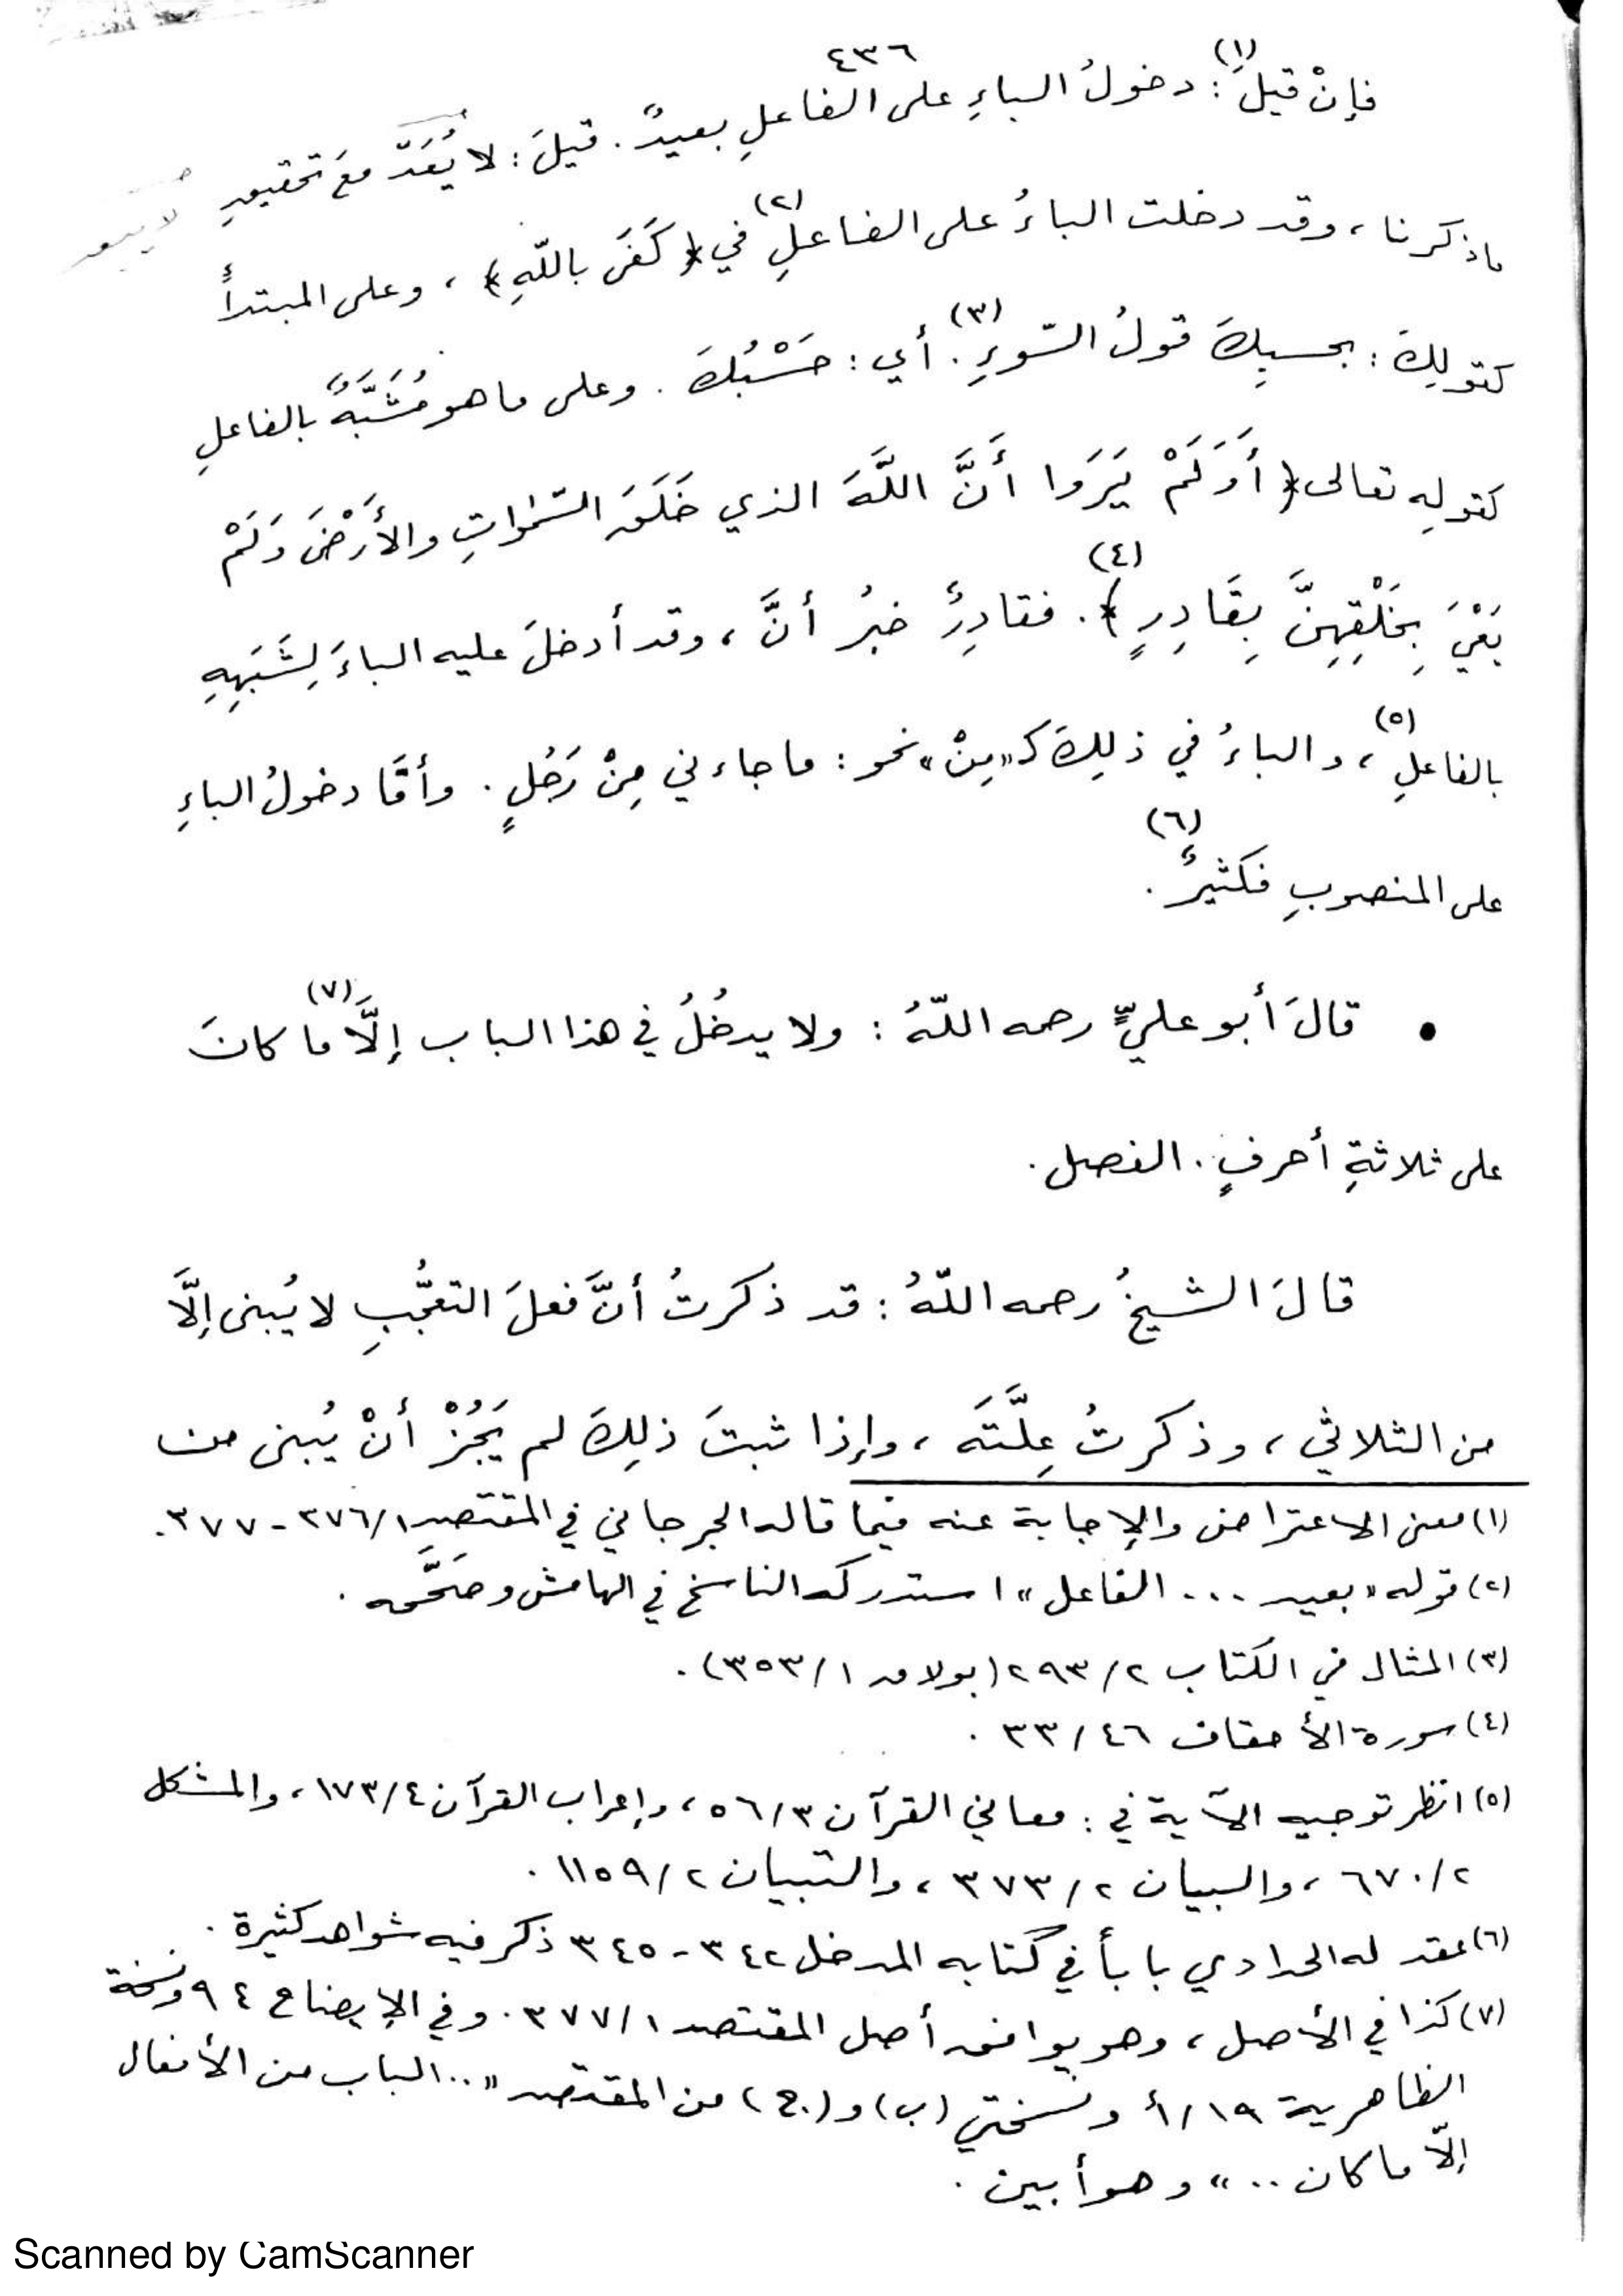 ٤٣٦
فإنْ قيلَ(١): دخولُ الباءِ على الفاعلِ بعيدٌ. قيلَ: لا يُعَدّ معَ تحقيقِ
ماذكرنا، وقد دخلت الباءُ على الفاعلِ(٢) في ﴿كَفَى باللّهِ﴾، وعلى المبتدأ
كقولِكَ: بحسبِكَ قولُ السّوءِ(٣). أي: حَسْبُكَ. وعلى ما هو مُشَبَّهٌ بالفاعلِ
كقولِه تعالى ﴿أَوَلَمْ يَرَوا أَنَّ اللَّهَ الذي خَلَقَ السّمواتِ والأَرْضَ وَلَمْ
يَعْيَ بِخَلْقِهِنَّ بِقَادِرٍ﴾(٤). فقادِرٌ خبرُ أنَّ، وقد أدخلَ عليه الباءَ لِشَبَهِهِ
بالفاعلِ(٥)، والباءُ في ذلِكَ كـ«مِنْ» نحو: ما جاءني مِنْ رَجُلٍ. وأمَّا دخولُ الباءِ
على المنصوبِ فكثيرٌ(٦).
• قالَ أبو عليٍّ رحمه اللّهُ: ولا يدخُلُ في هذا الباب إلَّا(٧) ما كانَ
على ثلاثةِ أحرفٍ. الفصل.
قالَ الشيخُ رحمه اللّهُ: قد ذكرتُ أنَّ فعلَ التعجُّبِ لا يُبنى إلَّا
من الثلاثي، وذكرتُ عِلَّتَه، وإذا ثبتَ ذلِكَ لم يَجُزْ أنْ يُبنى من
(١) معنى الاعتراض والإجابة عنه فيما قاله الجرجاني في المقتصد ١/٣٧٦-٣٧٧.
(٢) قوله «بعيد ... الفاعل» استدركه الناسخ في الهامش وصَحَّحه.
(٣) المثال في الكتاب ٢/٢٩٣ (بولاق ١/٣٥٣).
(٤) سورة الأحقاف ٤٦/٣٣.
(٥) انظر توجيه الآية في: معاني القرآن ٣/٥٦، وإعراب القرآن ٤/١٧٣، والمشكل
٢/٦٧٠، والبيان ٢/٣٧٣، والتبيان ٢/١١٥٩.
(٦) عقد له الحدادي باباً في كتابه المدخل ٣٤٢-٣٤٥ ذكر فيه شواهد كثيرة.
(٧) كذا في الأصل، وهو يوافق أصل المقتصد ١/٣٧٧. وفي الإيضاح ٩٤ ونسخة
الظاهرية ١٩/أ ونسختي (ب) و(ج) من المقتصد «.. الباب من الأفعال
إلّا ما كان ..» وهو أبين.
Scanned by CamScanner